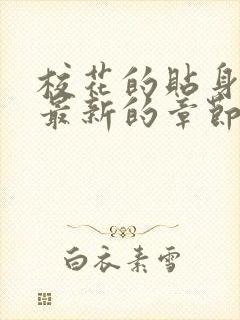 校花的貼身
最新的章節
白衣素雪